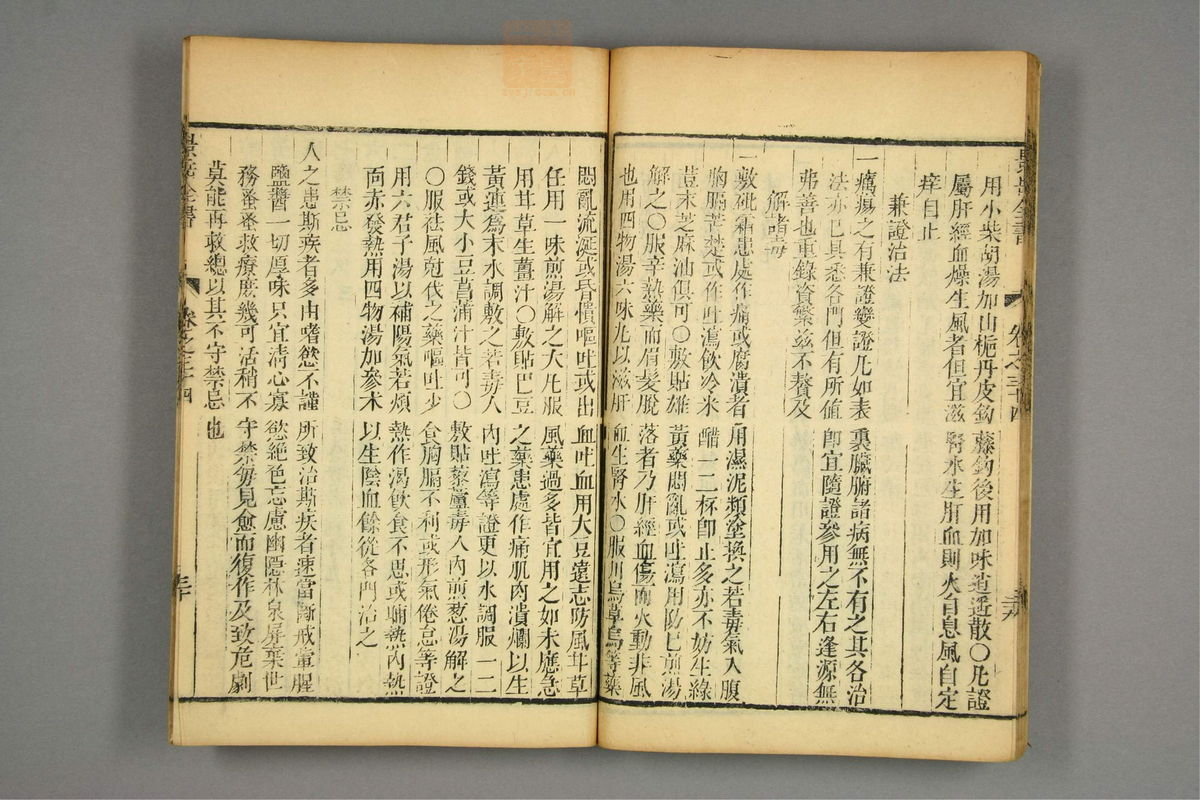 景岳全書 卷之三十四
用小柴胡湯加山梔丹皮鈎藤鈎後用加味逍遥散〇凡證
屬肝經血燥生風者但宜滋腎水生肝血則火自息風自定
痒自止
兼證治法
一癘瘍之有兼證變證凡如表裏臟腑諸病無不有之其各治
法亦已具悉各門但有所値卽宜隨證參用之左右逢源無
弗善也重録資繁兹不贅及
解諸毒
一敷砒霜患處作痛或腐潰者用濕泥類塗換之若毒氣入腹
胸膈苦楚或作吐瀉飲冷米醋一二杯卽止多亦不妨生綠
荳末芝麻油俱可〇敷貼雄黃藥悶亂或吐瀉用防巳煎湯
解之〇服辛熱藥而眉髮脫落者乃肝經血傷而火動非風
也用四物湯六味丸以滋肝血生腎水〇服川烏草烏等藥
悶亂流涎或昏憒嘔吐或出血吐血用大豆遠志防風甘草
任用一味煎湯解之大凡服風藥過多皆宜用之如未應急
用甘草生薑汁〇敷貼巴豆之藥患處作痛肌肉潰爛以生
黃連爲末水調敷之若毒入內吐瀉等證更以水調服一二
錢或大小豆菖蒲汁皆可〇敷貼藜蘆毒入內煎葱湯解之
〇服祛風尅伐之藥嘔吐少食胸膈不利或形氣倦怠等證
用六君子湯以補陽氣若煩熱作渴飲食不思或晡熱內熱
面赤發熱用四物湯加參朮以生陰血餘從各門治之
禁忌
人之患斯疾者多由嗜慾不謹所致治斯疾者速當漸戒葷腥
鹽醬一切厚味只宜清心寡慾絕色忘慮幽隱林泉屏棄世
務蚤蚤救療庶幾可活稍不守禁毎見愈而復作及致危劇
莫能再救總以其不守禁忌也
景岳全書 卷之三十四